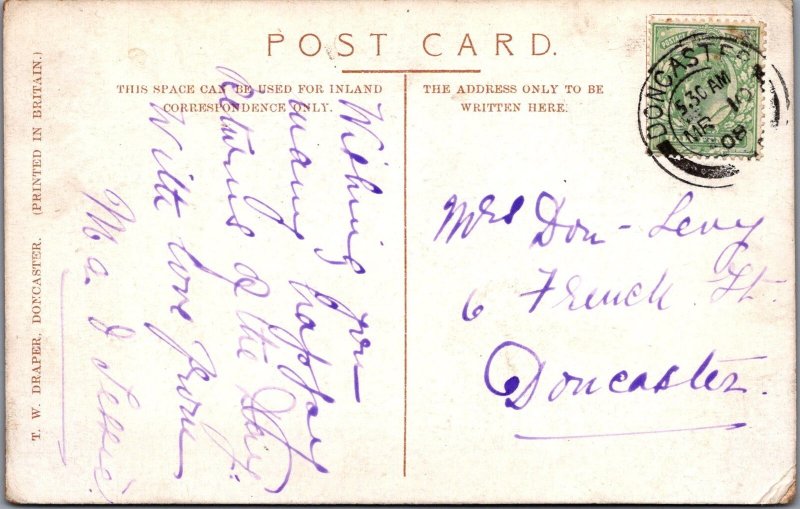 POST CARD.
THIS SPACE CAN BE USED FOR INLAND
CORRESPONDENCE ONLY.
THE ADDRESS ONLY TO BE
WRITTEN HERE.
DONCASTER
5.30 AM
MR 10
08
POSTAGE
Wishing you
many happy
Returns of the Day
With love from
Ma & Jessie
Mrs Don-Levy
6 French St.
Doncaster.
T. W. DRAPER, DONCASTER. (PRINTED IN BRITAIN.)